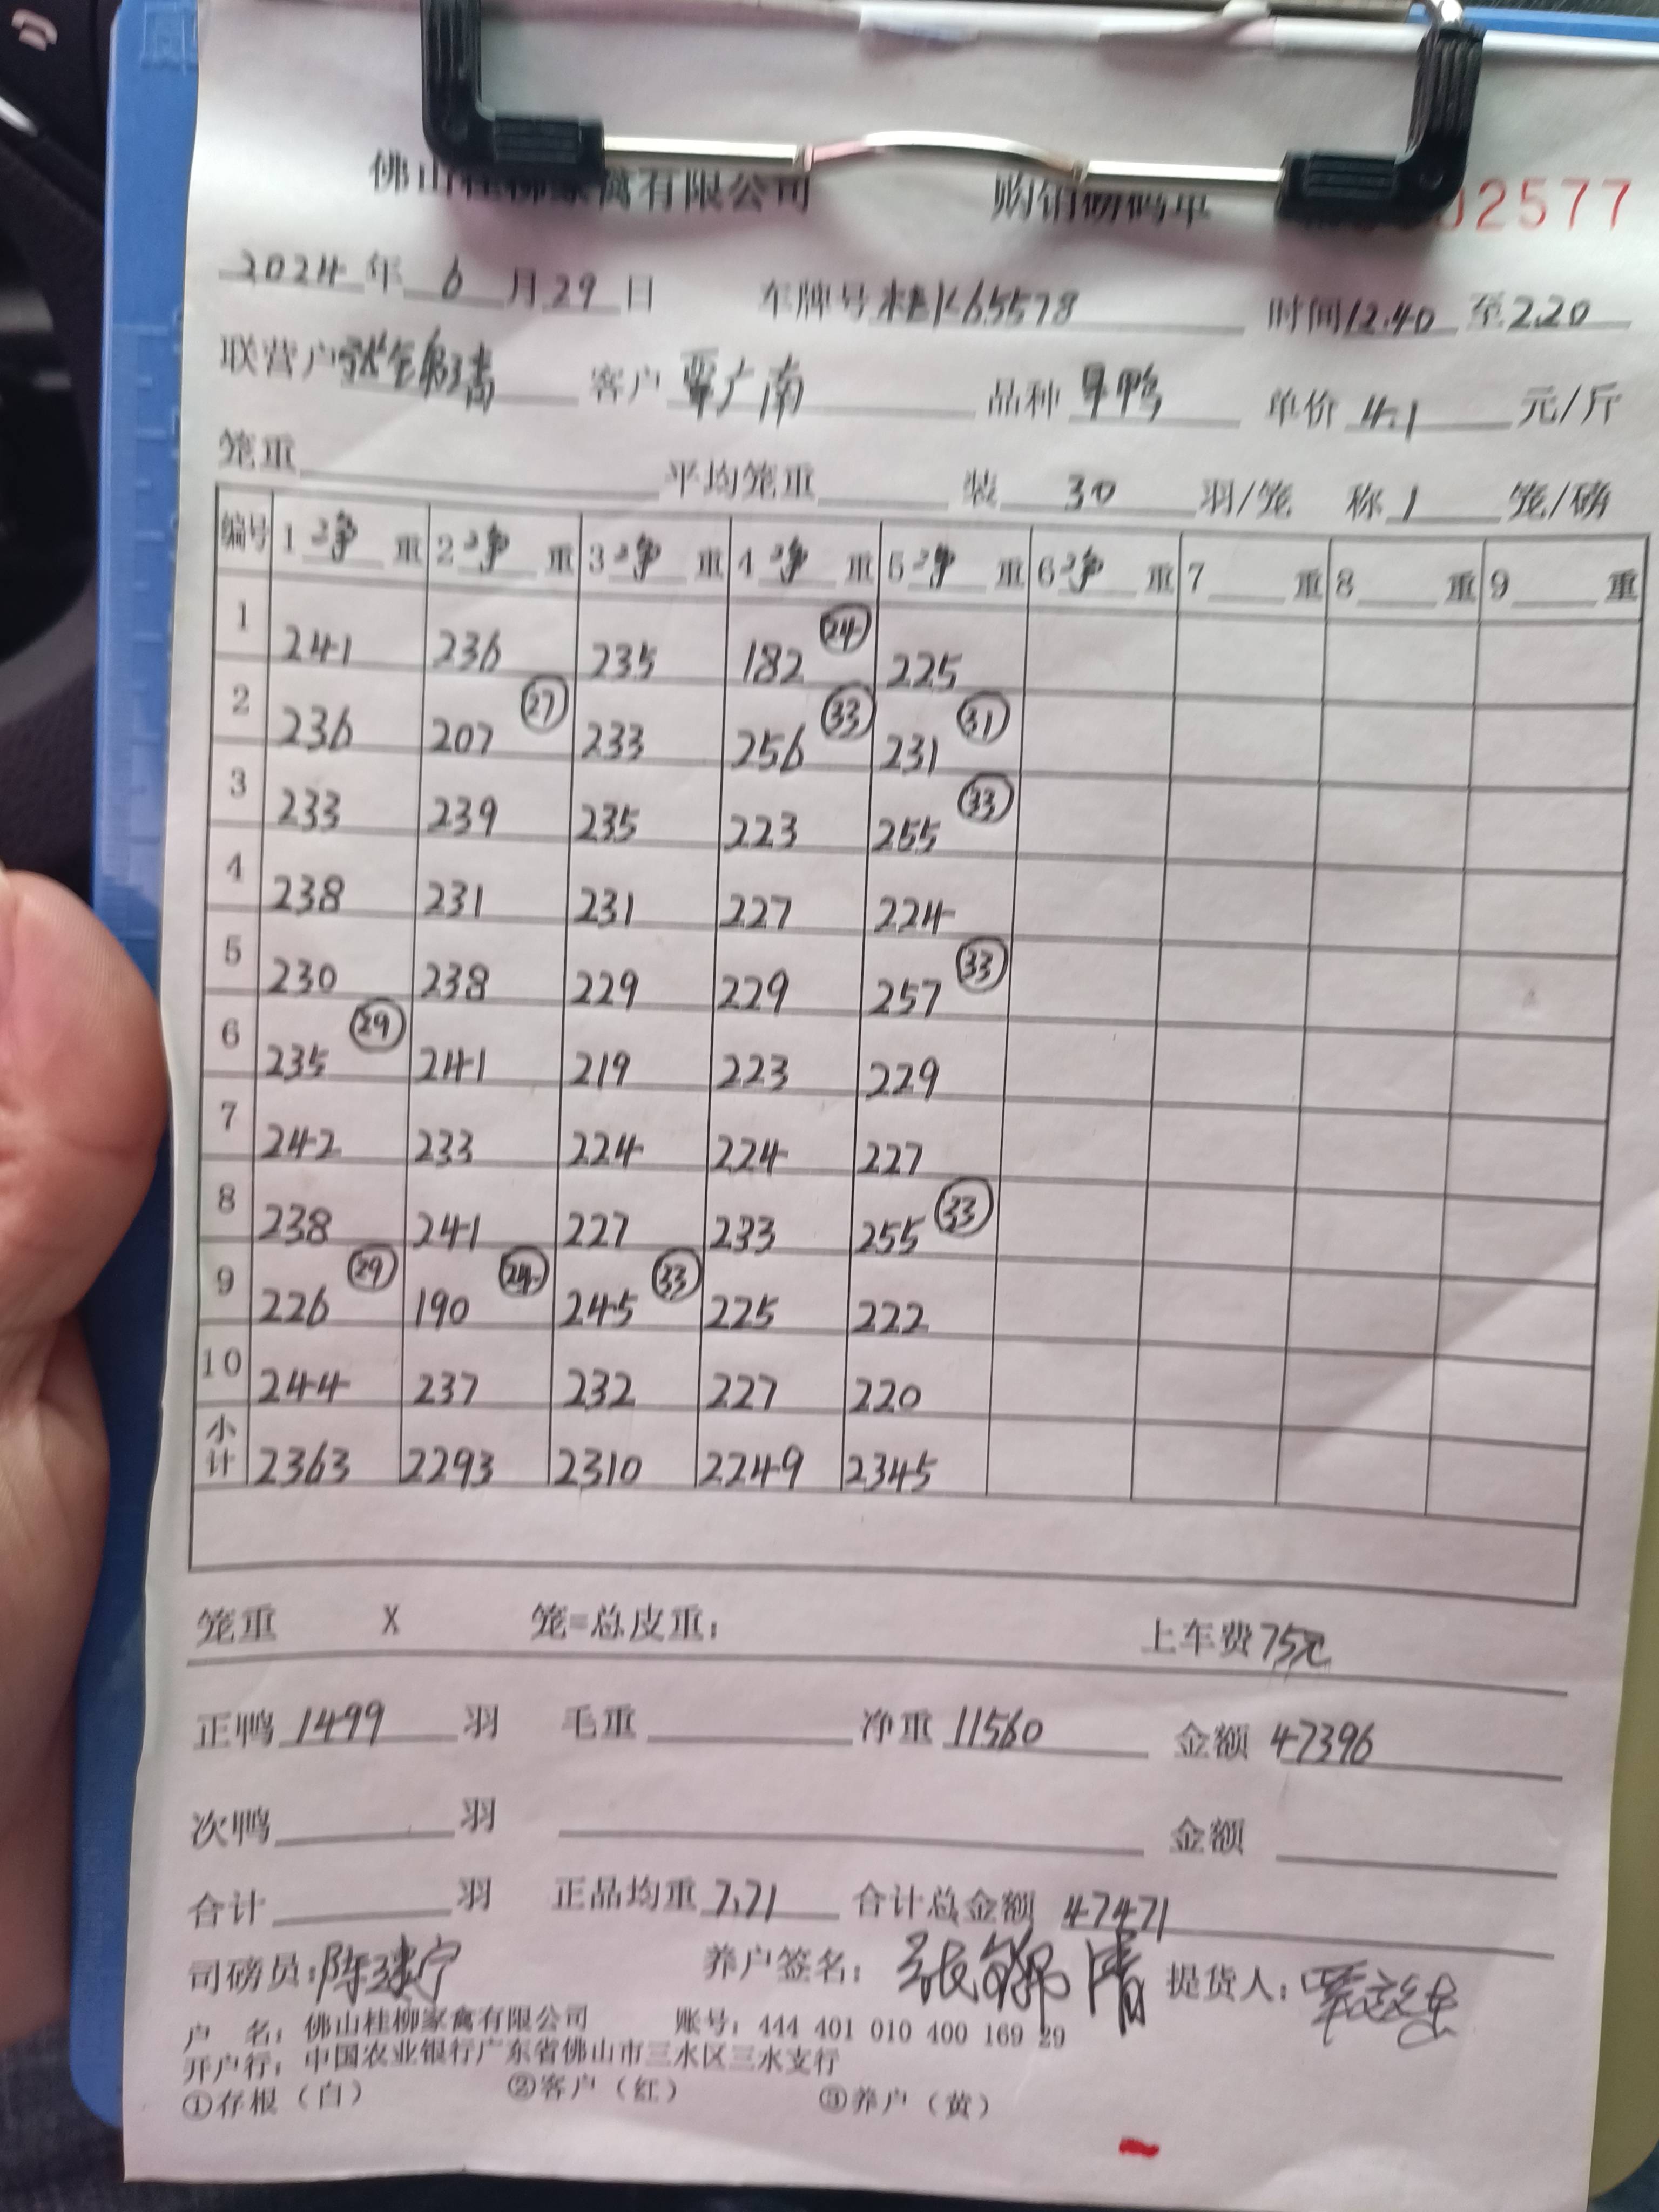 佛山桂柳家禽有限公司 购销磅码单 02577
2024年 6 月 29 日 车牌号 桂K65578 时间 12.40 至 2.20
联营户 客户 覃广南 品种 旱鸭 单价 4.1 元/斤
笼重 平均笼重 装 30 羽/笼 称 1 笼/磅
编号 1 净 重 2 净 重 3 净 重 4 净 重 5 净 重 6 净 重 7 重 8 重 9 重
1 241 236 235 182 ㉔ 225
2 236 207 ㉗ 233 256 ㉝ 231 ㉛
3 233 239 235 223 255 ㉝
4 238 231 231 227 224
5 230 238 229 229 257 ㉝
6 235 ㉙ 241 219 223 229
7 242 233 224 224 227
8 238 241 227 233 255 ㉝
9 226 ㉙ 190 ㉔ 245 ㉝ 225 222
10 244 237 232 227 220
小计 2363 2293 2310 2249 2345
笼重 X 笼=总皮重: 上车费 75元
正鸭 1499 羽 毛重 净重 11560 金额 47396
次鸭 羽 金额
合计 羽 正品均重 7.71 合计总金额 47471
司磅员: 养户签名: 提货人:
户 名: 佛山桂柳家禽有限公司 账号: 444 401 010 400 169 29
开户行: 中国农业银行广东省佛山市三水区三水支行
①存根（白） ②客户（红） ③养户（黄）